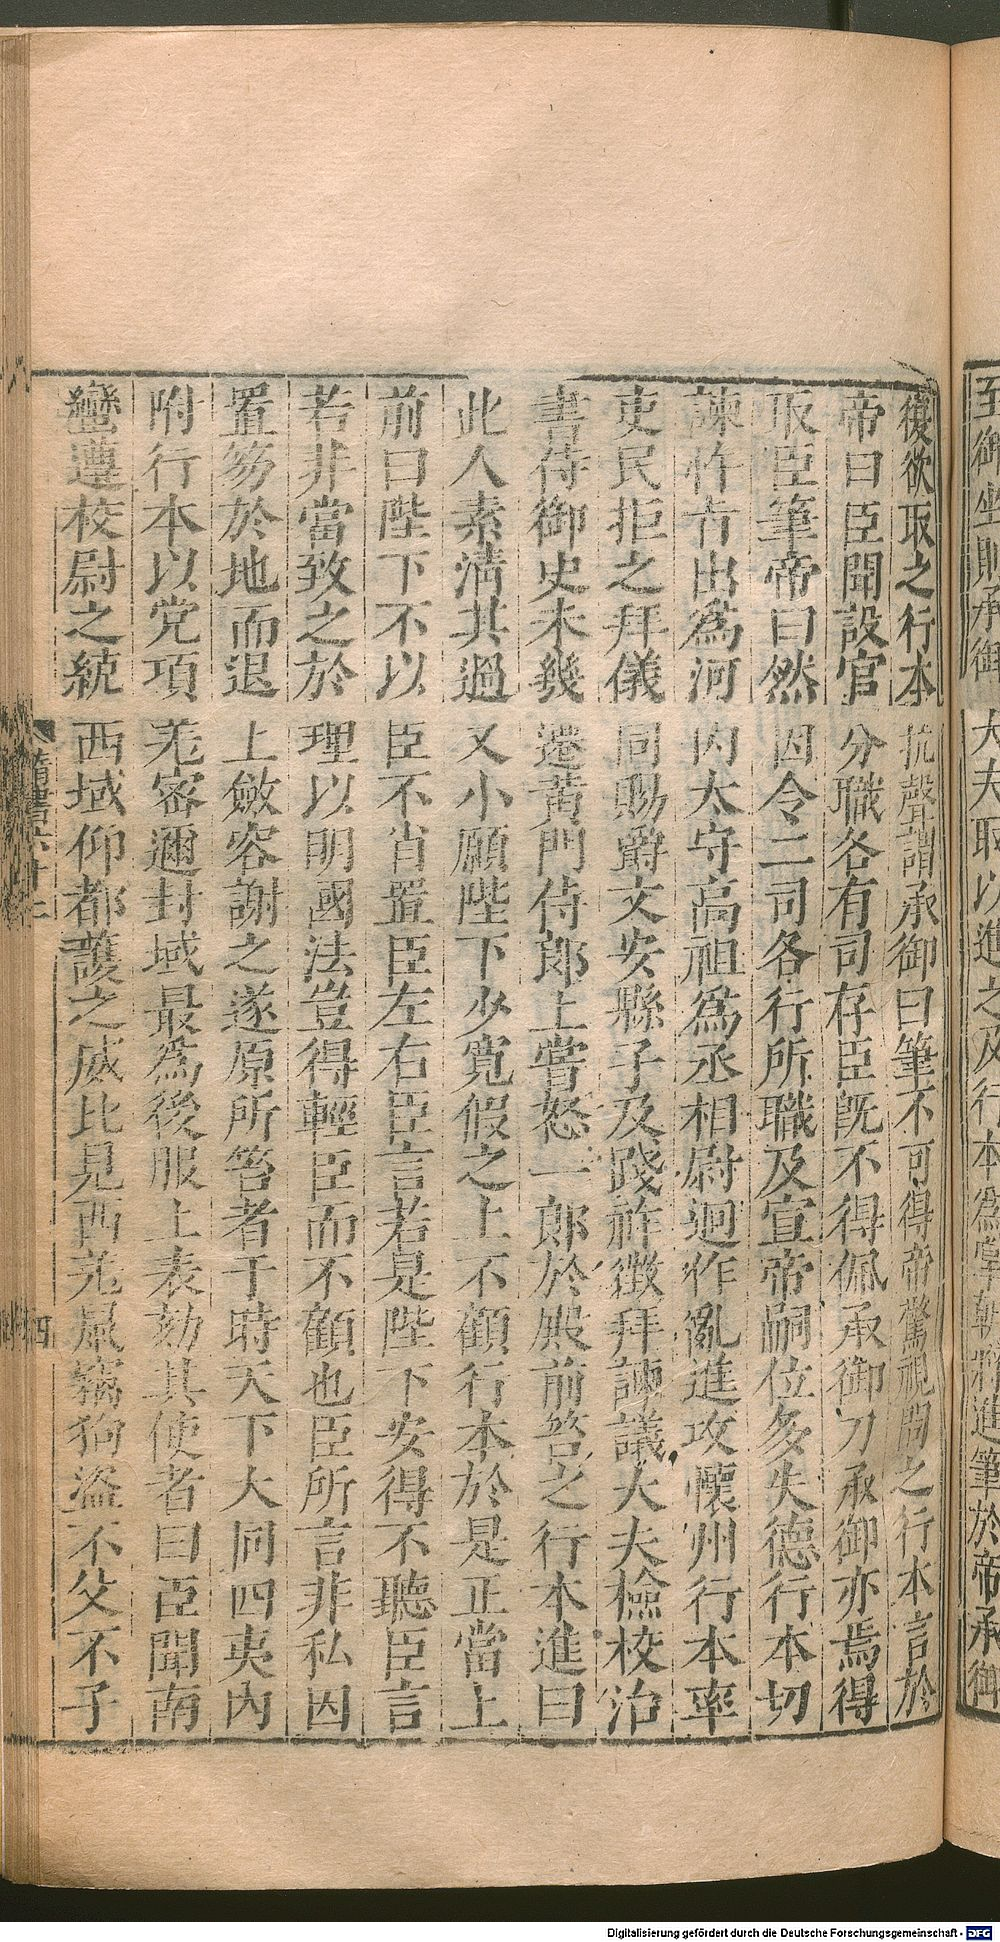 至御坐則承御大夫取以進之及行本爲掌朝將進筆於帝承御
復欲取之行本抗聲謂承御曰筆不可得帝驚視問之行本言於
帝曰臣聞設官分職各有司存臣既不得佩承御刀承御亦焉得
取臣筆帝曰然因令二司各行所職及宣帝嗣位多失德行本切
諫忤旨出爲河内太守高祖爲丞相尉迥作亂進攻懷州行本率
吏民拒之拜儀同賜爵文安縣子及踐祚徵拜諫議大夫檢校治
書侍御史未幾遷黃門侍郎上嘗怒一郎於殿前笞之行本進曰
此人素清其過又小願陛下少寬假之上不顧行本於是正當上
前曰陛下不以臣不肖置臣左右臣言若是陛下安得不聽臣言
若非當致之於理以明國法豈得輕臣而不顧也臣所言非私因
置笏於地而退上斂容謝之遂原所笞者于時天下大同四夷内
附行本以党項羌密邇封域最爲後服上表劾其使者曰臣聞南
蠻遵校尉之統西域仰都護之威比見西羌鼠竊狗盜不父不子
隋書六十二
四
Digitalisierung gefördert durch die Deutsche Forschungsgemeinschaft - DFG